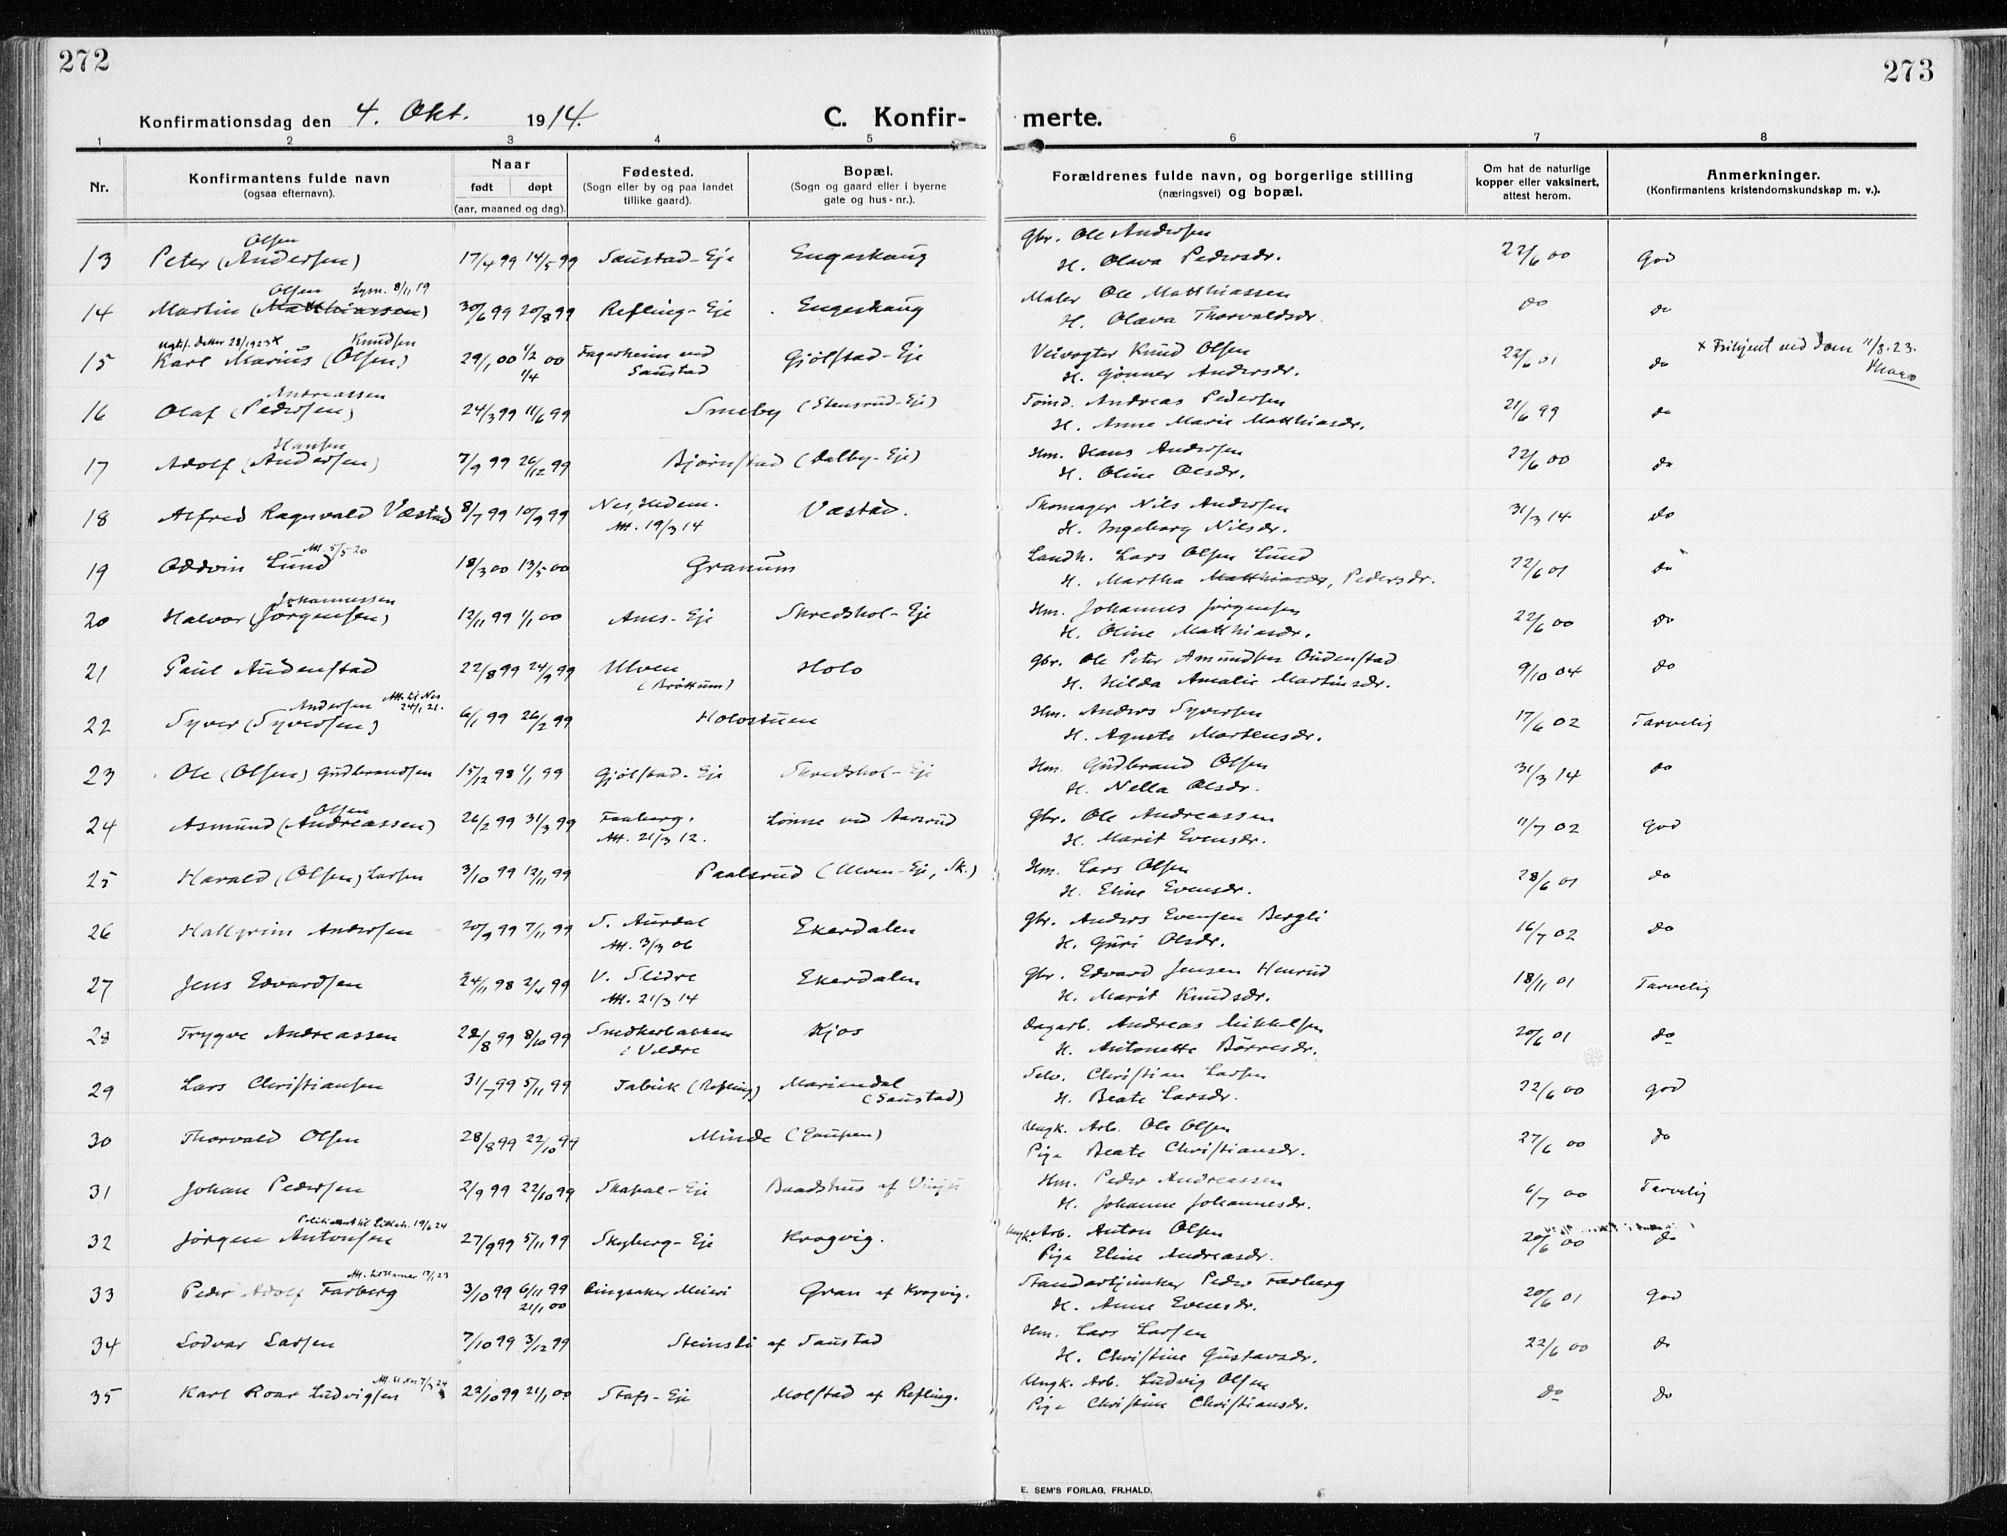 272
273
Konfirmationsdag den 4. Okt. 1914.
C. Konfir- merte.
1 2 3 4 5 6 7 8
Nr.
Konfirmantens fulde navn
(ogsaa efternavn).
Naar
født døpt
(aar, maaned og dag).
Fødested.
(Sogn eller by og paa landet
tillike gaard).
Bopæl.
(Sogn og gaard eller i byerne
gate og hus-nr.).
Forældrenes fulde navn, og borgerlige stilling
(næringsvei) og bopæl.
Om hat de naturlige
kopper eller vaksinert,
attest herom.
Anmerkninger.
(Konfirmantens kristendomskundskap m. v.).
Olsen Gbr. Ole Andersen
13 Peter (Andersen) 17/4 99 14/5 99 Saustad-Eje Engeshaug 22/6 00 God
H. Olava Pedersdr.
Olsen 8/11 19 Maler Ole Matthiassen
14 Martin (Matthiassen) 30/6 99 20/8 99 Refling-Eje Engeshaug do do
H. Olava Thorvaldsdr.
28/1923 x Knudsen Veivogter Knud Olsen
15 Karl Marius (Olsen) 29/1 00 1/2 00 Fagerheim ved Gjölstad-Eje 22/6 01 do x Frikjent ved dom 11/8.23.
1/4 Saustad H. Gönner Andersdr.
Andreassen Andreas Pedersen
16 Olaf (Pedersen) 24/3 99 11/6 99 Smeby (Stensrud-Eje) 21/6 99 do
H. Anne Marie Matthiasdr.
Hansen Hm. Hans Andersen
17 Adolf (Andersen) 7/9 99 26/12 99 Björnstad (Dalby-Eje) 22/6 00 do
H. Oline Olsdr.
18 Alfred Ragnvald Væstad 8/7 99 10/9 99 Nes, Hedem. Væstad. Skomager Nils Andersen 31/3 14 do
Att. 19/3 14 H. Ingeborg Nilsdr.
Att. 5/5 20 Landh. Lars Olsen Lund
19 Oddvin Lund 18/3 00 13/5 00 Granum 22/6 01 do
H. Martha Matthiasdr, Pedersdr.
Johannessen Hm. Johannes Jörgensen
20 Halvor (Jörgensen) 12/11 99 1/1 00 Ams-Eje Skredshol-Eje 22/6 00 do
H. Oline Matthiasdr.
21 Paul Audenstad 22/8 99 24/9 99 Ulven Holo Gbr. Ole Peter Amundsen Oudenstad 9/10 04 do
(Bröttum) H. Hilda Amalie Martinsdr.
Andersen Att. til Nes 24/1 21. Hm. Anders Syversen
22 Syver (Syversen) 6/1 99 26/2 99 Holostuen 17/6 02 Tarvelig
H. Agnete Mortensdr.
23 Ole (Olsen) Gudbrandsen 15/12 98 1/1 99 Gjölstad-Eje Skredshol-Eje Hm. Gudbrand Olsen 31/3 14 do
H. Nella Olsdr.
Olsen Gbr. Ole Andreassen
24 Asmund (Andreassen) 26/2 99 31/3 99 Faaberg. Lönne ved Aasrud 11/7 02 God
Att. 21/3 12. H. Marit Evensdr.
25 Harald (Olsen) Larsen 3/10 99 12/11 99 Paalsrud (Ulven-Eje, Sk.) Hm. Lars Olsen 28/6 01 do
H. Eline Evensdr.
26 Hallgrim Andersen 20/9 99 7/11 99 S. Aurdal Ekerdalen Gbr. Anders Evensen Bergli 16/7 02 do
Att. 3/3 06 H. Guri Olsdr.
27 Jens Edvardsen 24/11 98 2/4 99 V. Slidre Ekerdalen Gbr. Edvard Jensen Henrud 18/11 01 Tarvelig
Att. 21/3 14 H. Marit Knudsdr.
28 Trygve Andreassen 22/8 99 8/10 99 Smedkerbakken Kjos Dagarb. Andreas Mikkelsen 20/6 01 do
i Veldre H. Antonette Börresdr.
29 Lars Christiansen 31/7 99 5/11 99 Tabuk (Refling) Mariendal Selv. Christian Larsen 22/6 00 god
(Saustad) H. Beate Larsdr.
30 Thorvald Olsen 28/8 99 22/10 99 Minde (Gaupen) Ungk. Arb. Ole Olsen 27/6 00 do
Pige Beate Christiansdr.
31 Johan Pedersen 2/9 99 22/10 99 Skapal-Eje Baadshus af Vinju Hm. Peder Andreassen 6/7 00 Tarvelig
H. Johanne Johannesdr.
19/6 24
32 Jörgen Antonsen 27/9 99 5/11 99 Skyberg-Eje Krogvig. Ungk. Arb. Anton Olsen 20/6 00 do
Pige Eline Andreasdr.
33 Peder Adolf Farberg 3/10 99 6/11 99 Ringsaker Meieri Gran af Krogvig. Standartjunker Peder Farberg 20/6 01 god
21/1 00 H. Anne Evensdr.
34 Lodvar Larsen 7/10 99 3/12 99 Steinsli af Saustad Hm. Lars Larsen 22/6 00 do
H. Christine Gustavsdr.
7/3 24
35 Karl Roar Ludvigsen 22/10 99 21/1 00 Stafs-Eje Molstad af Refling. Ungk. Arb. Ludvig Olsen do do
Pige Christine Christiansdr.
E. SEM'S FORLAG, FR.HALD.